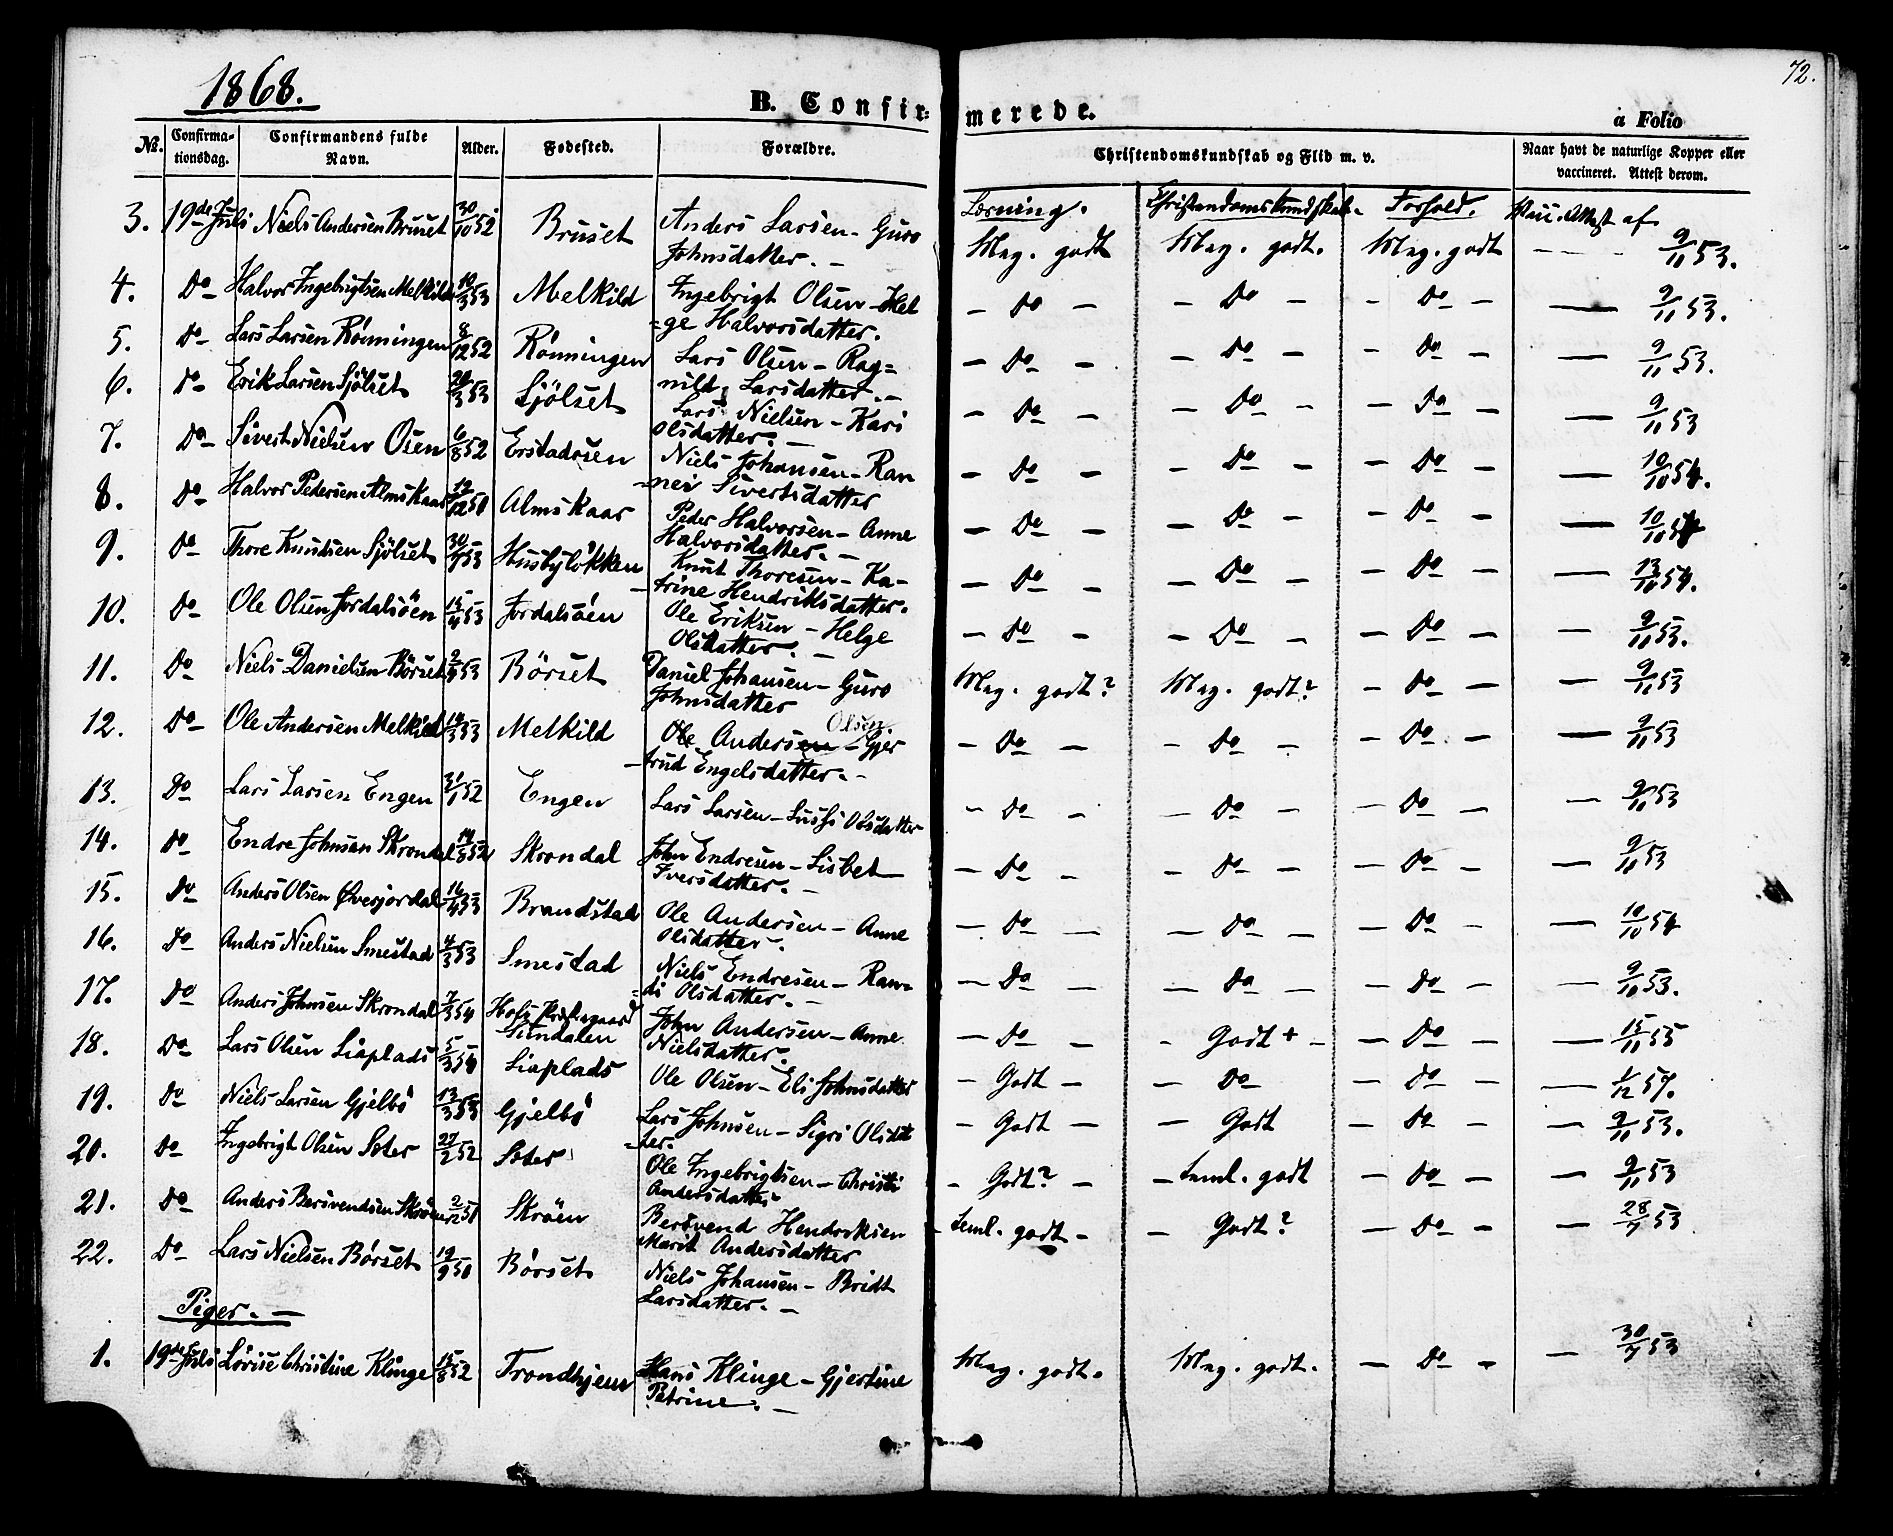 1868.
72.
B. Confirmerede.
a Folio
No. Confirmationsdag. Confirmandens fulde Navn. Alder. Fødested. Forældre. Christendomskundskab og Flid m. v. Naar havt de naturlige Kopper eller vaccineret. Attest derom.
Læsning. Christendomskundskab. Forhold. Vacc. Attest af
3. 19de Juli Niels Andersen Bruset 30/10 52 Bruset Anders Larsen - Guro Johnsdatter. - Meg. godt Meg. godt. Meg. godt 9/11 53.
4. Do Halvor Ingebrigtsen Melkild 10/3 53 Melkild Ingebrigt Olsen - Helge Halvorsdatter. - Do - - Do - - Do - - 9/11 53.
5. Do Lars Larsen Rönningen 8/12 52 Rönningen Lars Olsen - Ragnild Larsdatter. - - Do - - Do - - Do - - 9/11 53.
6. Do Erik Larsen Sjölset 20/3 53 Sjölset Lars Nielsen - Kari Olsdatter. - - Do - - Do - - Do - - 9/11 53
7. Do Sivert Nielsen Osen 6/8 52 Erstadosen Niels Johansen - Rannei Sivertsdatter - Do - - Do - - Do - - 10/10 54.
8. Do Halvor Pedersen Almskaar 19/12 50 Almskaar Peder Halvorsen - Anne Halvorsdatter. - - Do - - Do - - Do - - 10/10 54
9. Do Thore Knudsen Sjölset 30/7 53 Husbylökken Knut Thoresen - Katrine Hendriksdatter. - Do - - Do - - Do - - 13/10 54.
10. Do Ole Olsen Jordalsöen 15/4 53 Jordalsöen Ole Eriksen - Helge Olsdatter. - - Do - - Do - - Do - - 9/11 53.
11. Do Niels Danielsen Börset 9/4 53 Börset Daniel Johansen - Guro Johnsdatter Meg. godt? Meg. godt? - Do - - 9/11 53
12. Do Ole Andersen Melkild 14/3 53 Melkild Ole Andersen Olsen - Gjertrud Engelsdatter. - - Do - - Do - - Do - - 9/11 53
13. Do Lars Larsen Engen 31/1 52 Engen Lars Larsen - Olsdatter - Do - - Do - - Do - - 9/11 53
14. Do Endre Johnsen Skrondal 14/5 52 Skrondal John Endresen - Lisbet Iversdatter. - - Do - - Do - - Do - - 9/11 53
15. Do Anders Olsen Øverjordal 16/4 53 Brandstad Ole Andersen - Anne Olsdatter. - Do - - Do - - Do - - 10/10 54
16. Do Anders Nielsen Smestad 4/3 53 Smestad Niels Endresen - Randi Olsdatter. - - Do - - Do - - Do - - 9/10 53.
17. Do Anders Johnsen Skrondal 7/3 54 Hofs Præstegaard Sundalen John Andersen - Anne Nielsdatter. - Do - - Godt + - - Do - - 15/11 55
18. Do Lars Olsen Liaplads 5/3 54 Liaplads Ole Olsen - Eli Johnsdatter - Godt - - Do - Do - - 1/12 57.
19. Do Niels Larsen Gjelbö 13/3 53 Gjelbö Lars Johnsen - Sigri Olsdatter. - Godt - - Godt - Do - - 9/11 53.
20. Do Ingebrigt Olsen Soter 27/2 52 Soter Ole Ingebrigtsen - Christi Andersdatter - Godt? - - teml. godt - Do - - 9/11 53
21. Do Anders Bersvendsen Skröen 2/12 51 Skröen Bersvend Hendriksen Marit Andersdatter - teml. godt - - Godt? - Do - - 28/7 53
22. Do Lars Nielsen Börset 19/9 50 Börset Niels Johansen - Bridt Larsdatter. -
Piger. -
1. 19de Juli Lovise Christine Klinge 15/8 52 Trondhjem Hans Klinge - Gjertine Petrine. - Meg. godt. Meg. godt. - Do - - 30/7 53